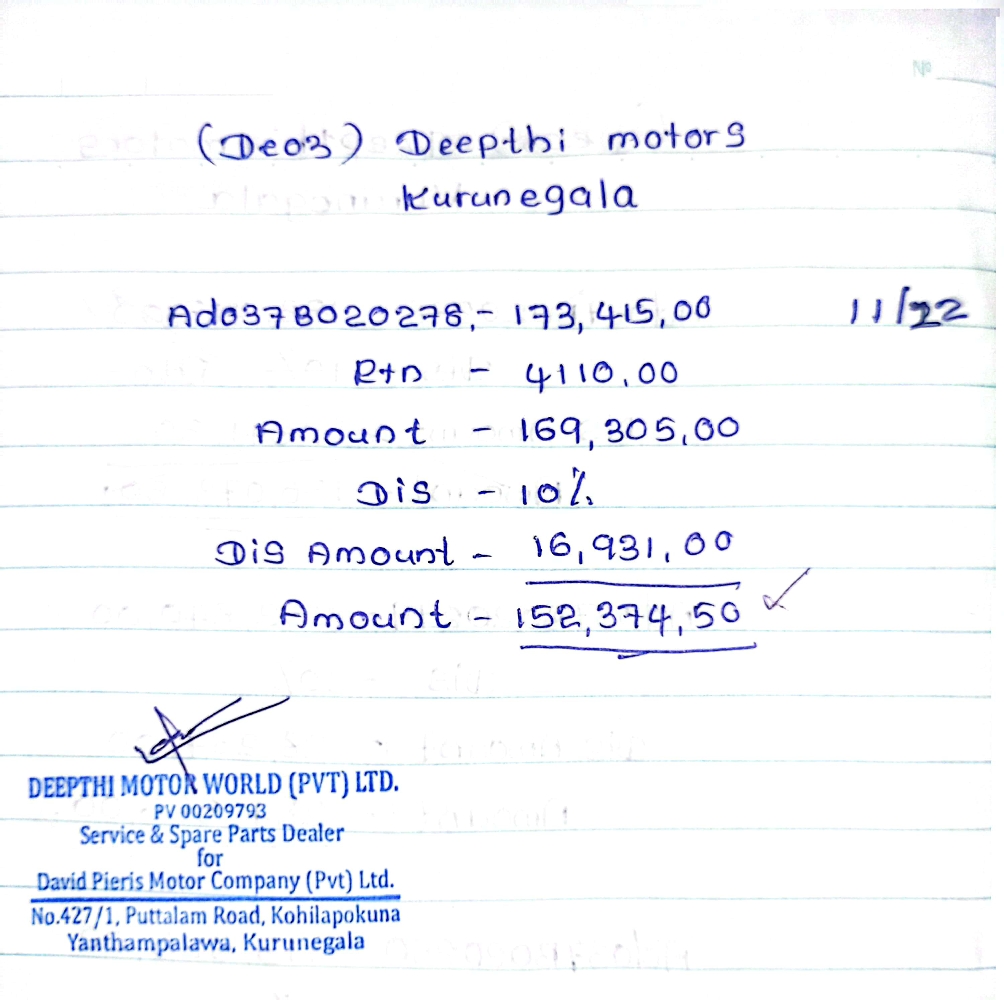 No
(De03) Deepthi motors
Kurunegala
Ad037B020278,- 173,415,00 11/22
Rtn - 4110.00
Amount - 169,305,00
Dis - 10%
Dis Amount - 16,931,00
Amount - 152,374,50 ✓
DEEPTHI MOTOR WORLD (PVT) LTD.
PV 00209793
Service & Spare Parts Dealer
for
David Pieris Motor Company (Pvt) Ltd.
No.427/1, Puttalam Road, Kohilapokuna
Yanthampalawa, Kurunegala